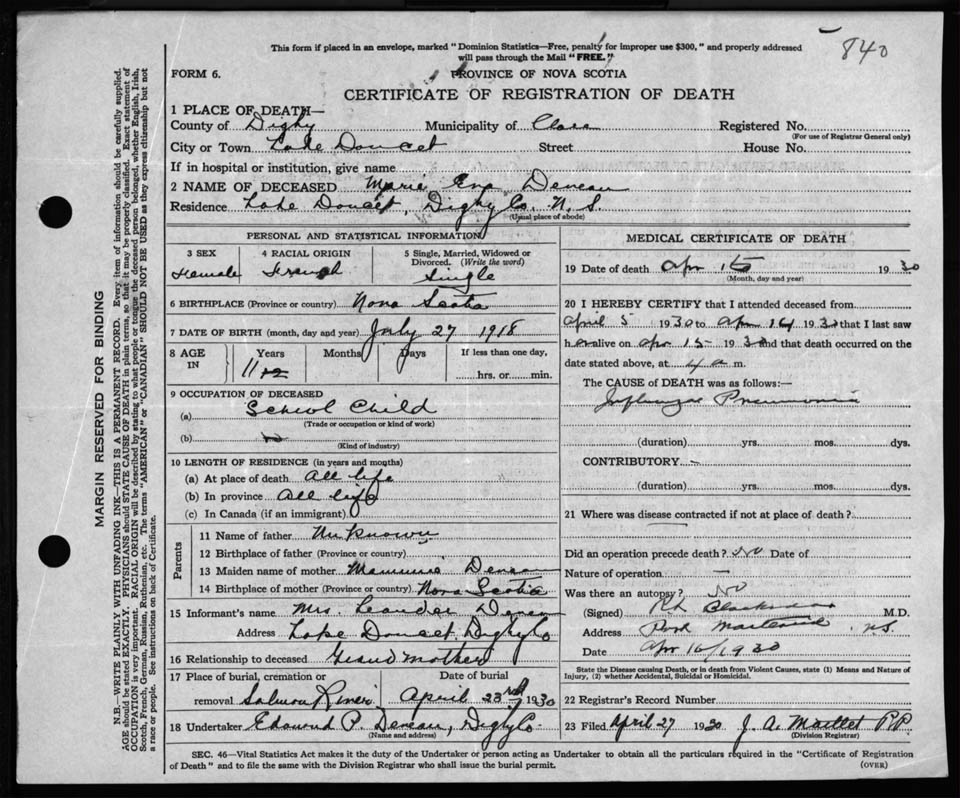 This form if placed in an envelope, marked "Dominion Statistics—Free, penalty for improper use $300," and properly addressed
will pass through the Mail "FREE."
840
FORM 6.
PROVINCE OF NOVA SCOTIA
CERTIFICATE OF REGISTRATION OF DEATH
1 PLACE OF DEATH—
County of Digby Municipality of Clare Registered No.
(For use of Registrar General only)
City or Town Lake Doucet Street House No.
If in hospital or institution, give name
2 NAME OF DECEASED Marie Eva Deveau
Residence Lake Doucet, Digby Co. N. S.
(Usual place of abode)
PERSONAL AND STATISTICAL INFORMATION
3 SEX 4 RACIAL ORIGIN 5 Single, Married, Widowed or
Divorced. (Write the word)
Female French Single
6 BIRTHPLACE (Province or country) Nova Scotia
7 DATE OF BIRTH (month, day and year) July 27 1918
8 AGE IN Years Months Days If less than one day,
11
hrs. or min.
9 OCCUPATION OF DECEASED
(a) School Child
(Trade or occupation or kind of work)
(b)
(Kind of industry)
10 LENGTH OF RESIDENCE (in years and months)
(a) At place of death all life
(b) In province all life
(c) In Canada (if an immigrant)
Parents
11 Name of father Unknown
12 Birthplace of father (Province or country)
13 Maiden name of mother Deveau
14 Birthplace of mother (Province or country) Nova Scotia
15 Informant's name Mrs. Leander Deveau
Address Lake Doucet, Digby Co
16 Relationship to deceased Grand mother
17 Place of burial, cremation or Date of burial
removal Salmon River April 23rd 1930
18 Undertaker Edmond P. Deveau, Digby Co
(Name and address)
MEDICAL CERTIFICATE OF DEATH
19 Date of death Apr 15 1930
(Month, day and year)
20 I HEREBY CERTIFY that I attended deceased from
April 5 1930 to Apr 14 1930 that I last saw
her alive on Apr 15 1930 and that death occurred on the
date stated above, at 4 a m.
The CAUSE of DEATH was as follows:—
Influenza Pneumonia
(duration) yrs. mos. dys.
CONTRIBUTORY —
(duration) yrs. mos. dys.
21 Where was disease contracted if not at place of death?
Did an operation precede death? No Date of
Nature of operation —
Was there an autopsy? No
(Signed) M.D.
Address Port Maitland N.S.
Date Apr 16/1930
State the Disease causing Death, or in death from Violent Causes, state (1) Means and Nature of
Injury, (2) whether Accidental, Suicidal or Homicidal.
22 Registrar's Record Number
23 Filed April 27 1930 J. A. Maillet P.P.
(Division Registrar)
SEC. 46—Vital Statistics Act makes it the duty of the Undertaker or person acting as Undertaker to obtain all the particulars required in the "Certificate of Registration
of Death" and to file the same with the Division Registrar who shall issue the burial permit.
(OVER)
MARGIN RESERVED FOR BINDING
N.B.—WRITE PLAINLY WITH UNFADING INK—THIS IS A PERMANENT RECORD. Every item of information should be carefully supplied.
AGE should be stated EXACTLY. PHYSICIANS should STATE CAUSE OF DEATH in plain terms, so that it may be properly classified. Exact statement of
OCCUPATION is very important. RACIAL ORIGIN will be described by stating to what people or tongue the deceased person belonged, whether English, Irish,
Scotch, French, German, Russian, Ruthenian, etc. The terms "AMERICAN" or "CANADIAN" SHOULD NOT BE USED as they express citizenship but not
a race or people. See instructions on back of Certificate.